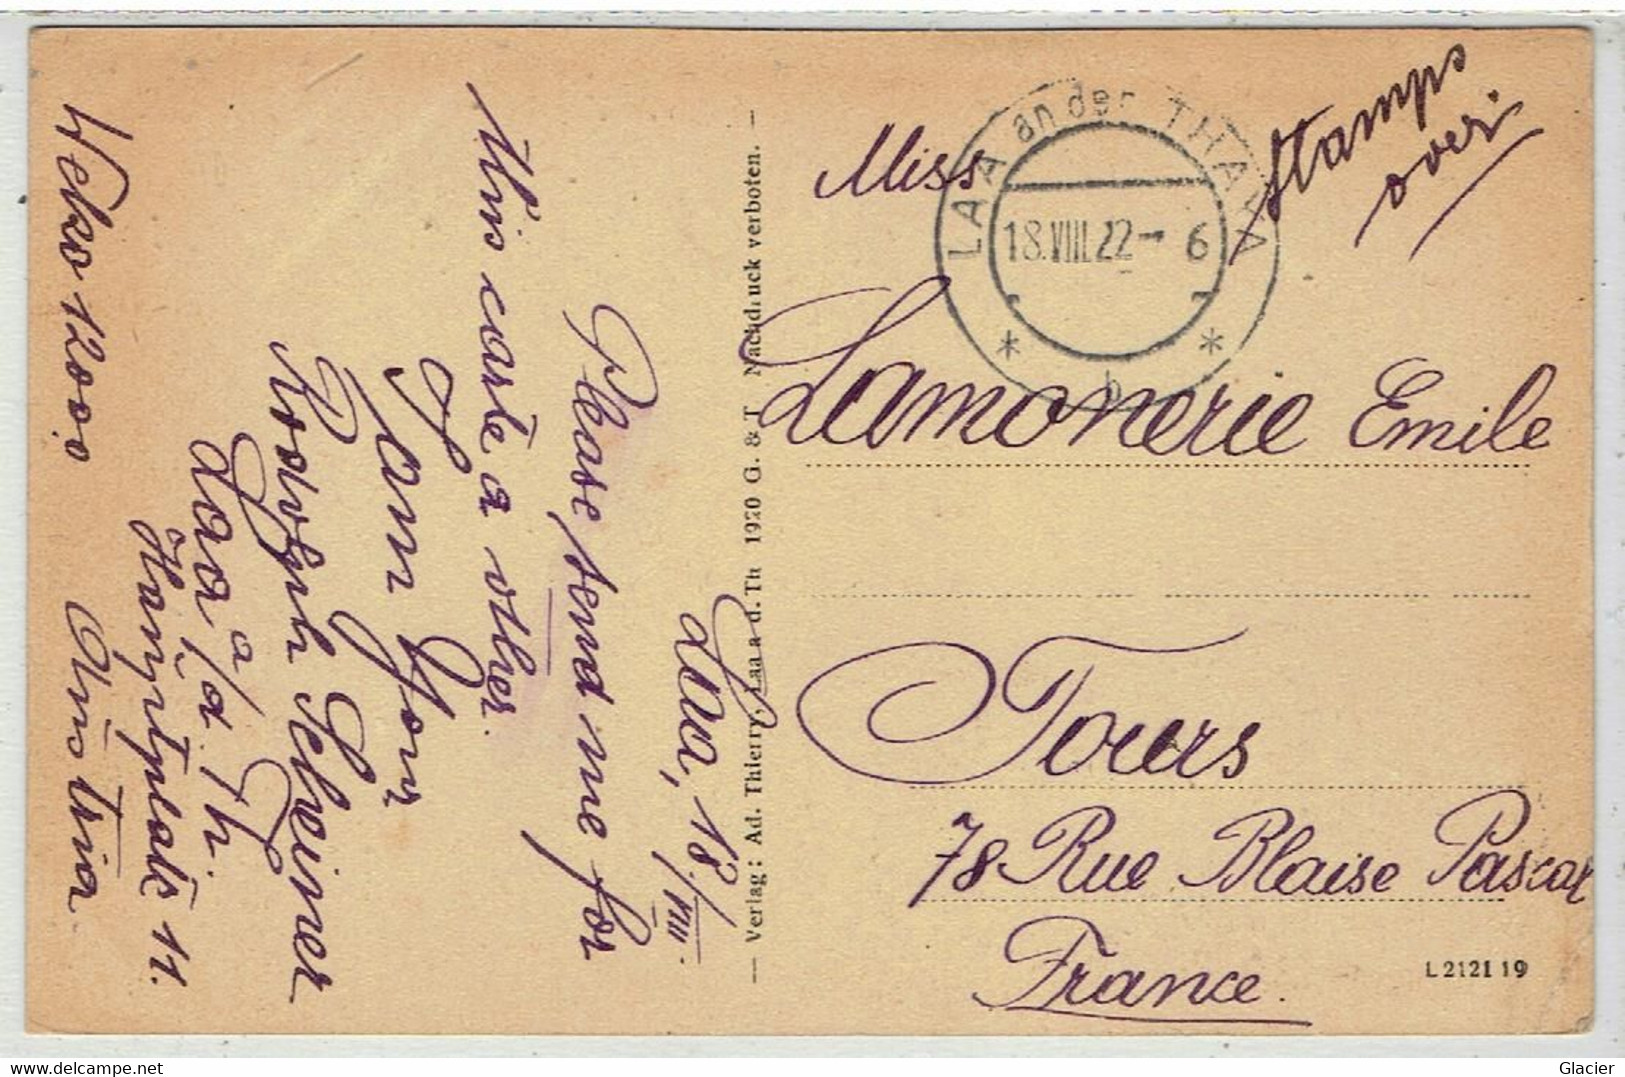 Laa, 18./VIII.
Please send me for
this carte a other.
I am Your
Scheiner
Laa a/d. Th.
Hauptplatz 11.
Austria
Weko 12000
— Verlag: Ad. Thierry, Laa a d. Th 1920 G. & T Nachdruck verboten. —
LAA an der THAYA
18.VIII.22-6
* b *
Stamps
over.
Miss
Lamonerie Emile
Tours
78 Rue Blaise Pascal
France.
L 2121 19
Glacier